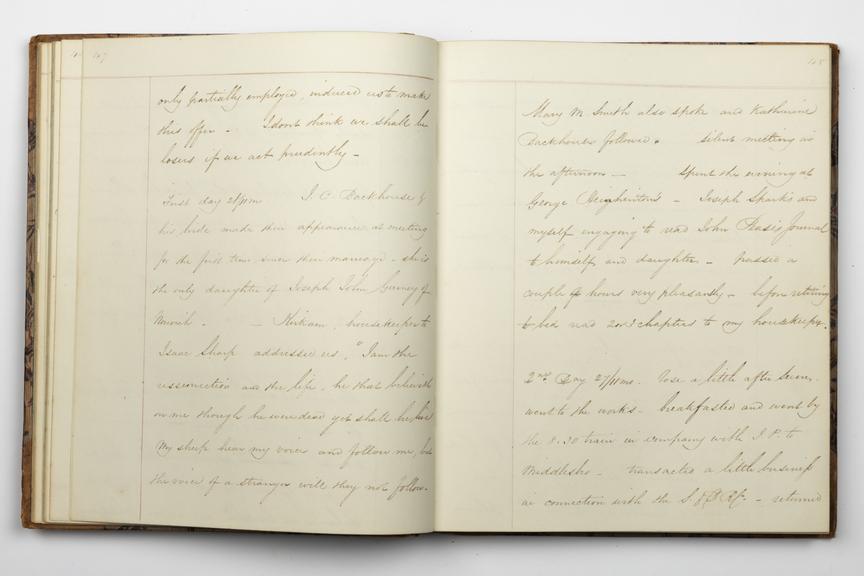 107
only partially employed, induced us to make
this offer - I dont think we shall be
losers if we act prudently -
First day 26/11mo J. C. Backhouse &
his bride made their appearance at meeting
for the first time since their marriage - she is
the only daughter of Joseph John Gurney of
Norwich. - Kirkam, housekeeper to
Isaac Sharp addressed us, "I am the
resurrection and the life, he that believeth
on me though he were dead yet shall he live
My sheep hear my voice and follow me, but
the voice of a stranger will they not follow.
108
Mary M. Smith also spoke and Katharine
Backhouse followed. Silent meeting in
the afternoon - Spent the evening at
George - Joseph Sparks and
myself engaging to read John Journal
to himself and daughter - passed a
couple of hours very pleasantly - before retiring
to bed read 2 or 3 chapters to my housekeeper.
2nd Day 27/11mo. rose a little after seven.
went to the works - breakfasted and went by
the 8.30 train in company with J. P. to
Middlesbro - transacted a little business
in connection with the S. & D. Ry. - returned